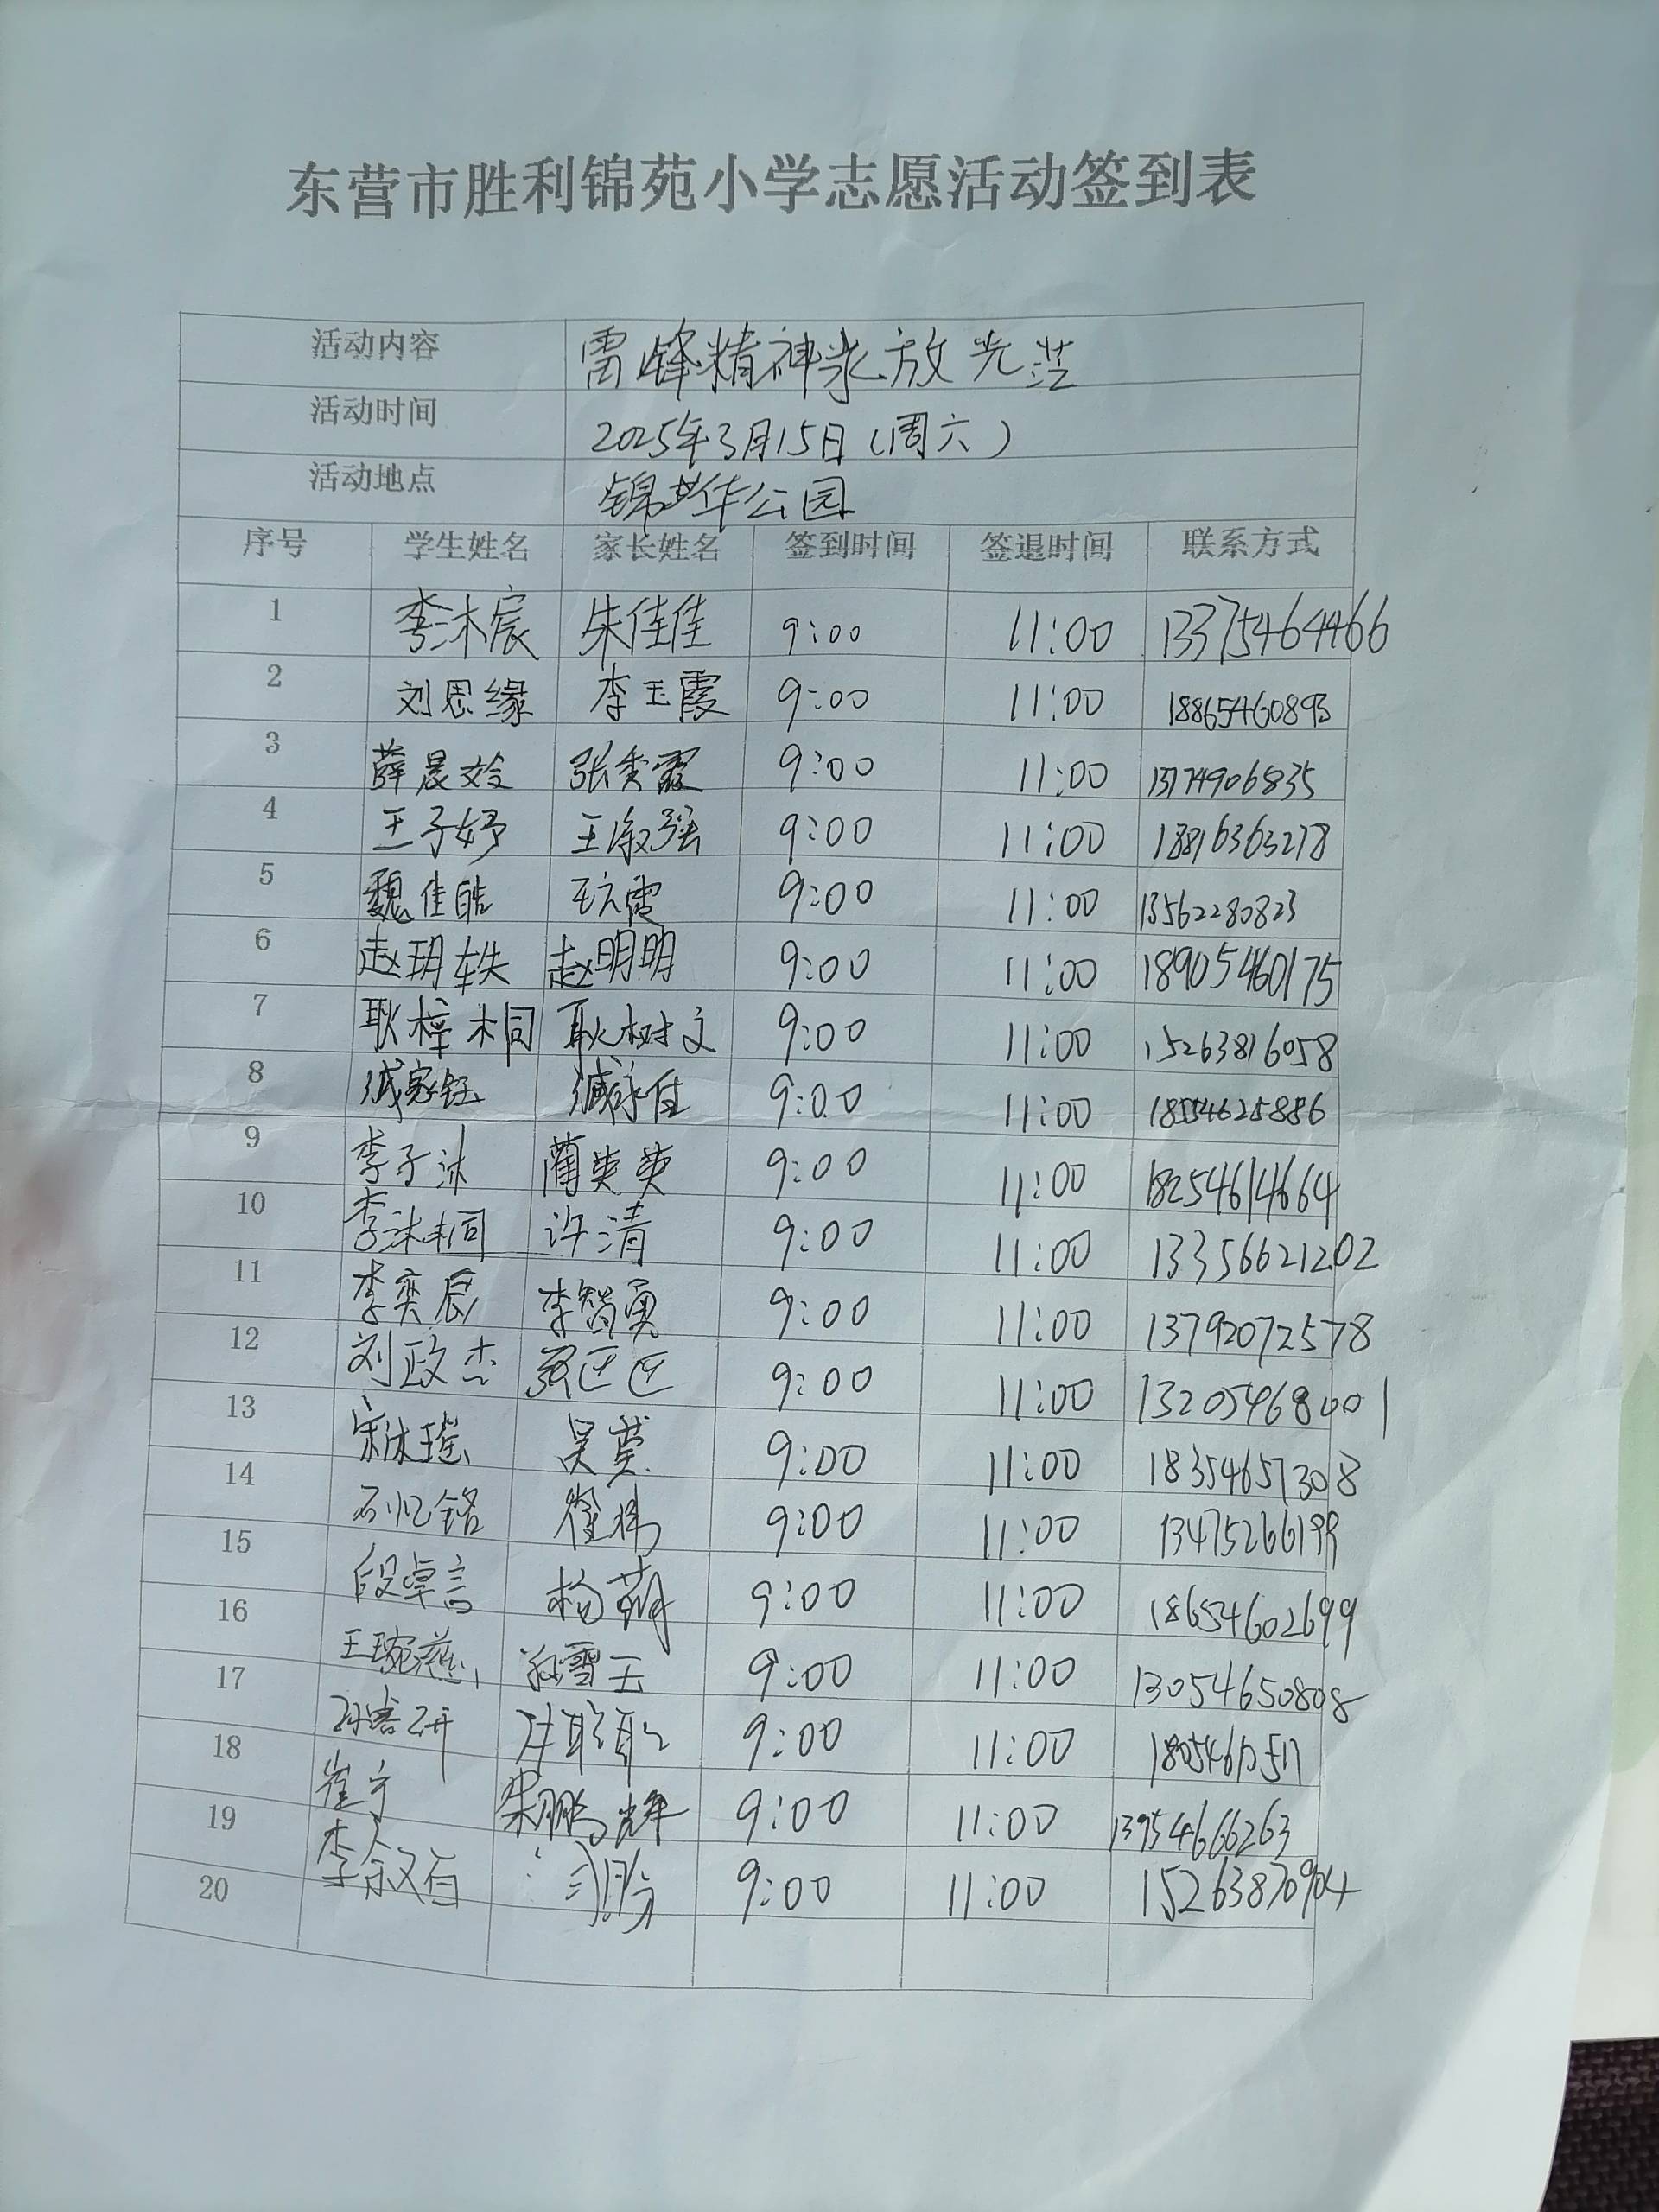 东营市胜利锦苑小学志愿活动签到表
活动内容 雷锋精神永放光芒
活动时间 2025年3月15日（周六）
活动地点 锦华公园
序号 学生姓名 家长姓名 签到时间 签退时间 联系方式
1 李沐宸 朱佳佳 9:00 11:00 13375464466
2 刘思缘 李玉霞 9:00 11:00 18865460893
3 薛晨姈 张秀霞 9:00 11:00 13774906835
4 王子妤 王淑强 9:00 11:00 18816363278
5 魏佳皓 9:00 11:00 13562280823
6 赵玥轶 赵明明 9:00 11:00 18905460175
7 耿梓桐 耿树文 9:00 11:00 15263816058
8 臧家钰 臧永佳 9:00 11:00 18554625886
9 李子沐 蔺英英 9:00 11:00 18254614664
10 李沐桐 许清 9:00 11:00 13356621202
11 李奕辰 李智勇 9:00 11:00 13792072578
12 刘政杰 9:00 11:00 13205468001
13 宋沐瑶 吴莫 9:00 11:00 18354657308
14 石忆铭 9:00 11:00 13475266199
15 段卓言 杨萌 9:00 11:00 18654602699
16 王琬慈 孙雪玉 9:00 11:00 13054650808
17 9:00 11:00
18 崔宁 梁鹏辉 9:00 11:00 13954666263
19 李叙百 9:00 11:00 15263870904
20